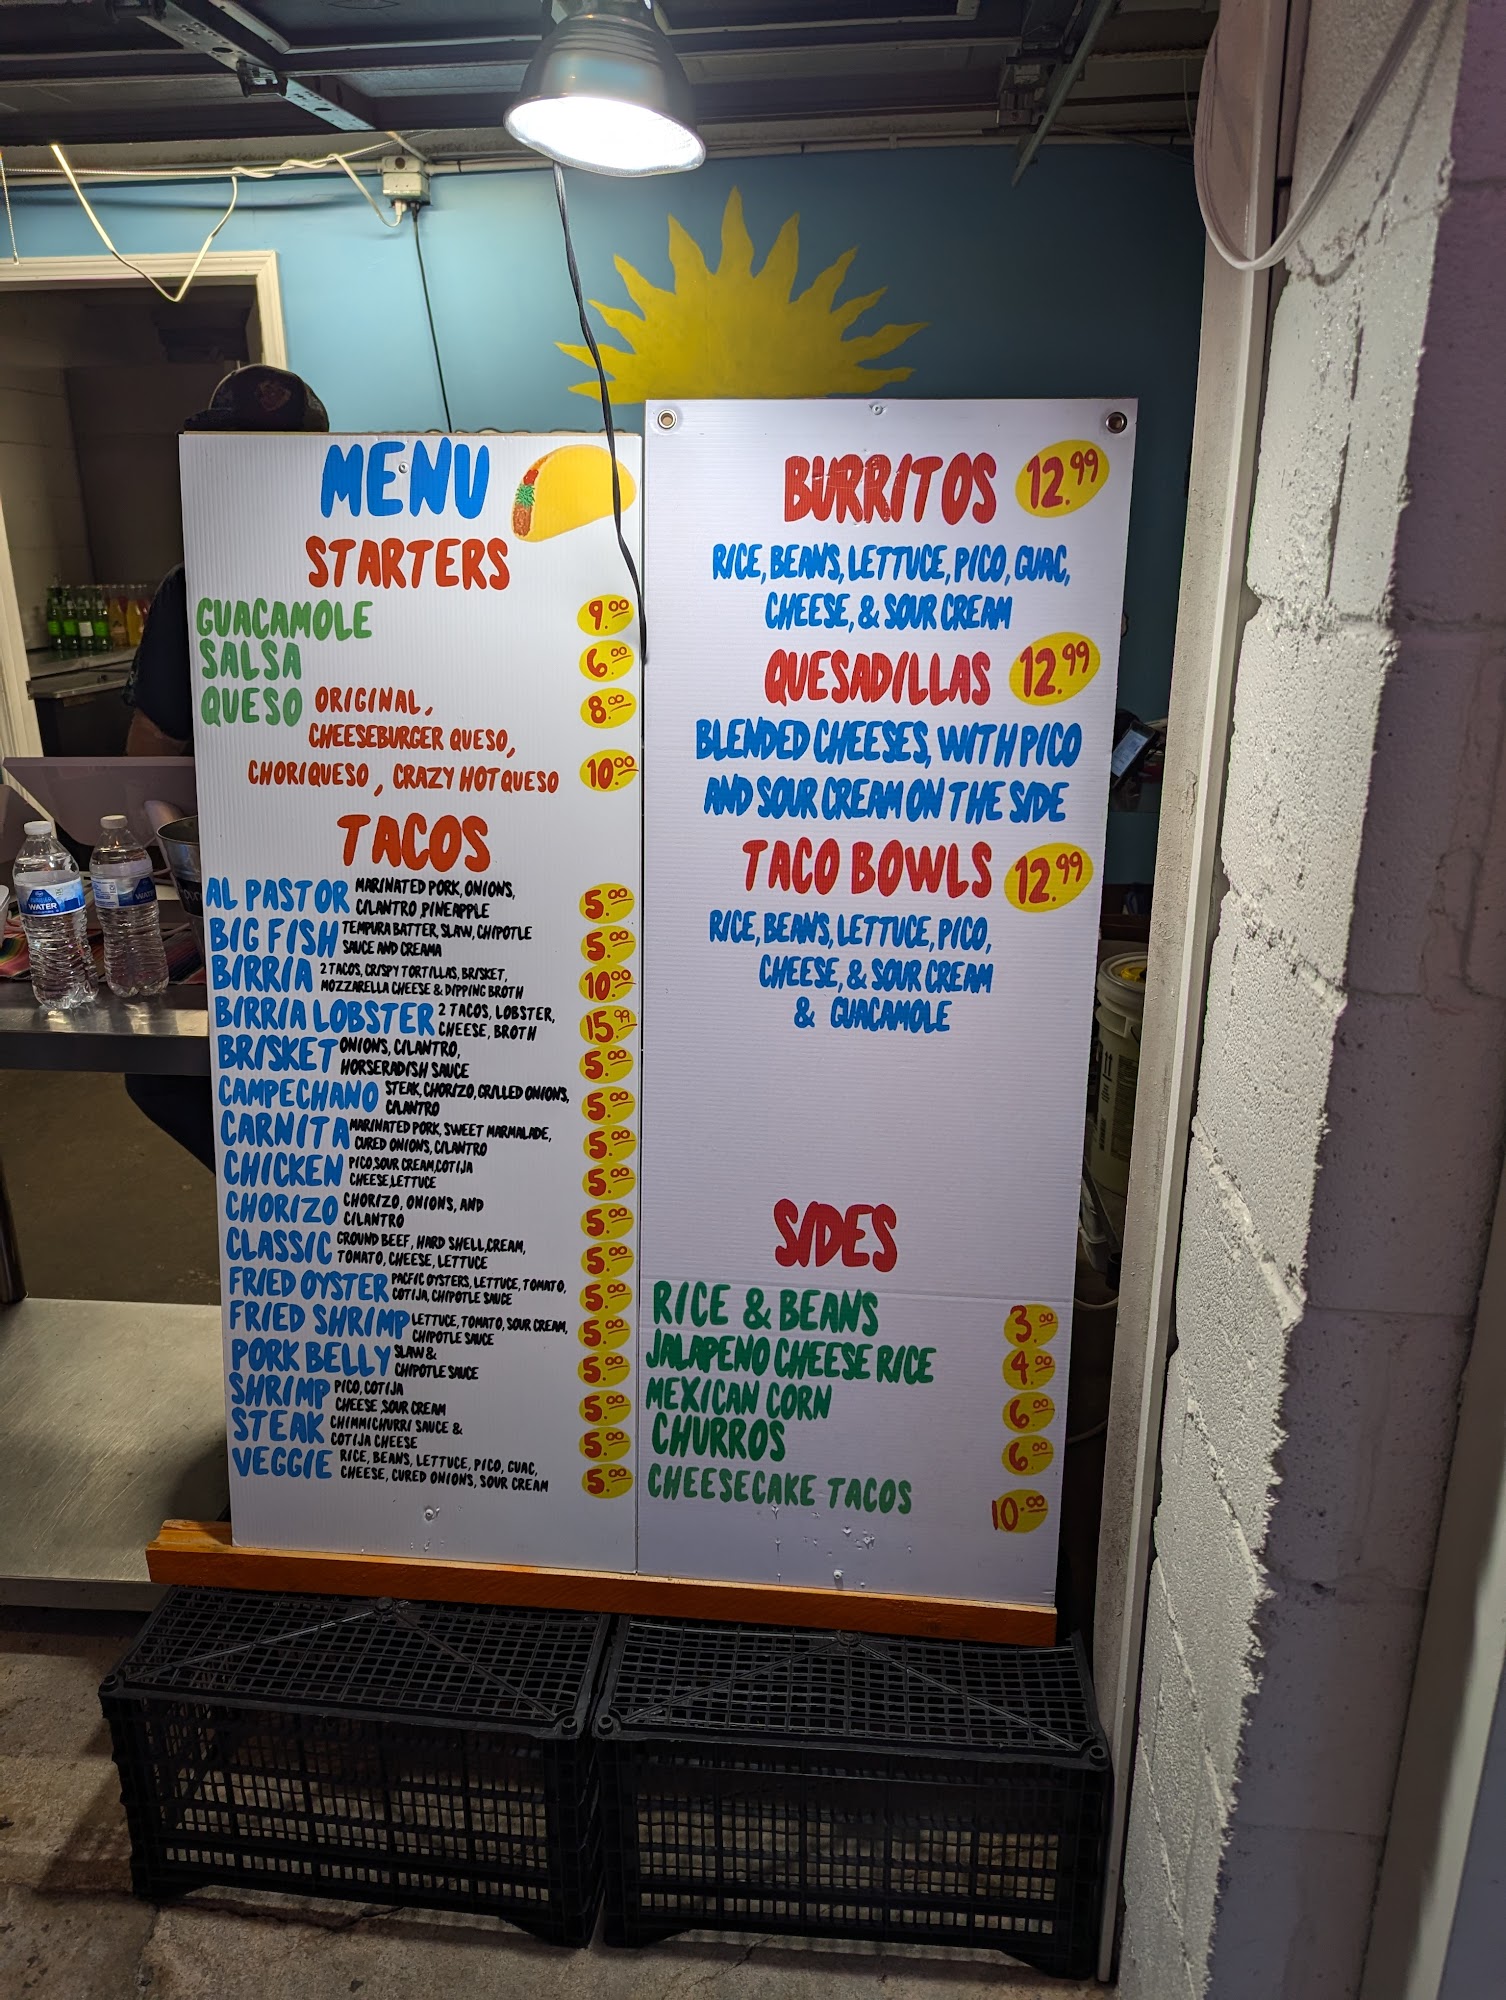 MENU
STARTERS
GUACAMOLE 9.00
SALSA 6.00
QUESO ORIGINAL, 8.00
CHEESEBURGER QUESO,
CHORIQUESO, CRAZY HOT QUESO 10.00
TACOS
AL PASTOR MARINATED PORK, ONIONS, CILANTRO, PINEAPPLE 5.00
BIG FISH TEMPURA BATTER, SLAW, CHIPOTLE SAUCE AND CREAMA 5.00
BIRRIA 2 TACOS, CRISPY TORTILLAS, BRISKET, MOZZARELLA CHEESE & DIPPING BROTH 10.00
BIRRIA LOBSTER 2 TACOS, LOBSTER, CHEESE, BROTH 15.99
BRISKET ONIONS, CILANTRO, HORSERADISH SAUCE 5.00
CAMPECHANO STEAK, CHORIZO, GRILLED ONIONS, CILANTRO 5.00
CARNITA MARINATED PORK, SWEET MARMALADE, CURED ONIONS, CILANTRO 5.00
CHICKEN PICO, SOUR CREAM, COTIJA CHEESE, LETTUCE 5.00
CHORIZO CHORIZO, ONIONS, AND CILANTRO 5.00
CLASSIC GROUND BEEF, HARD SHELL, CREAM, TOMATO, CHEESE, LETTUCE 5.00
FRIED OYSTER PACFIC OYSTERS, LETTUCE, TOMATO, COTIJA, CHIPOTLE SAUCE 5.00
FRIED SHRIMP LETTUCE, TOMATO, SOUR CREAM, CHIPOTLE SAUCE 5.00
PORK BELLY SLAW & CHIPOTLE SAUCE 5.00
SHRIMP PICO, COTIJA CHEESE, SOUR CREAM 5.00
STEAK CHIMMICHURRI SAUCE & COTIJA CHEESE 5.00
VEGGIE RICE, BEANS, LETTUCE, PICO, GUAC, CHEESE, CURED ONIONS, SOUR CREAM 5.00
BURRITOS 12.99
RICE, BEANS, LETTUCE, PICO, GUAC,
CHEESE, & SOUR CREAM
QUESADILLAS 12.99
BLENDED CHEESES, WITH PICO
AND SOUR CREAM ON THE SIDE
TACO BOWLS 12.99
RICE, BEANS, LETTUCE, PICO,
CHEESE, & SOUR CREAM
& GUACAMOLE
SIDES
RICE & BEANS 3.00
JALAPENO CHEESE RICE 4.00
MEXICAN CORN 6.00
CHURROS 6.00
CHEESECAKE TACOS 10.00
WATER